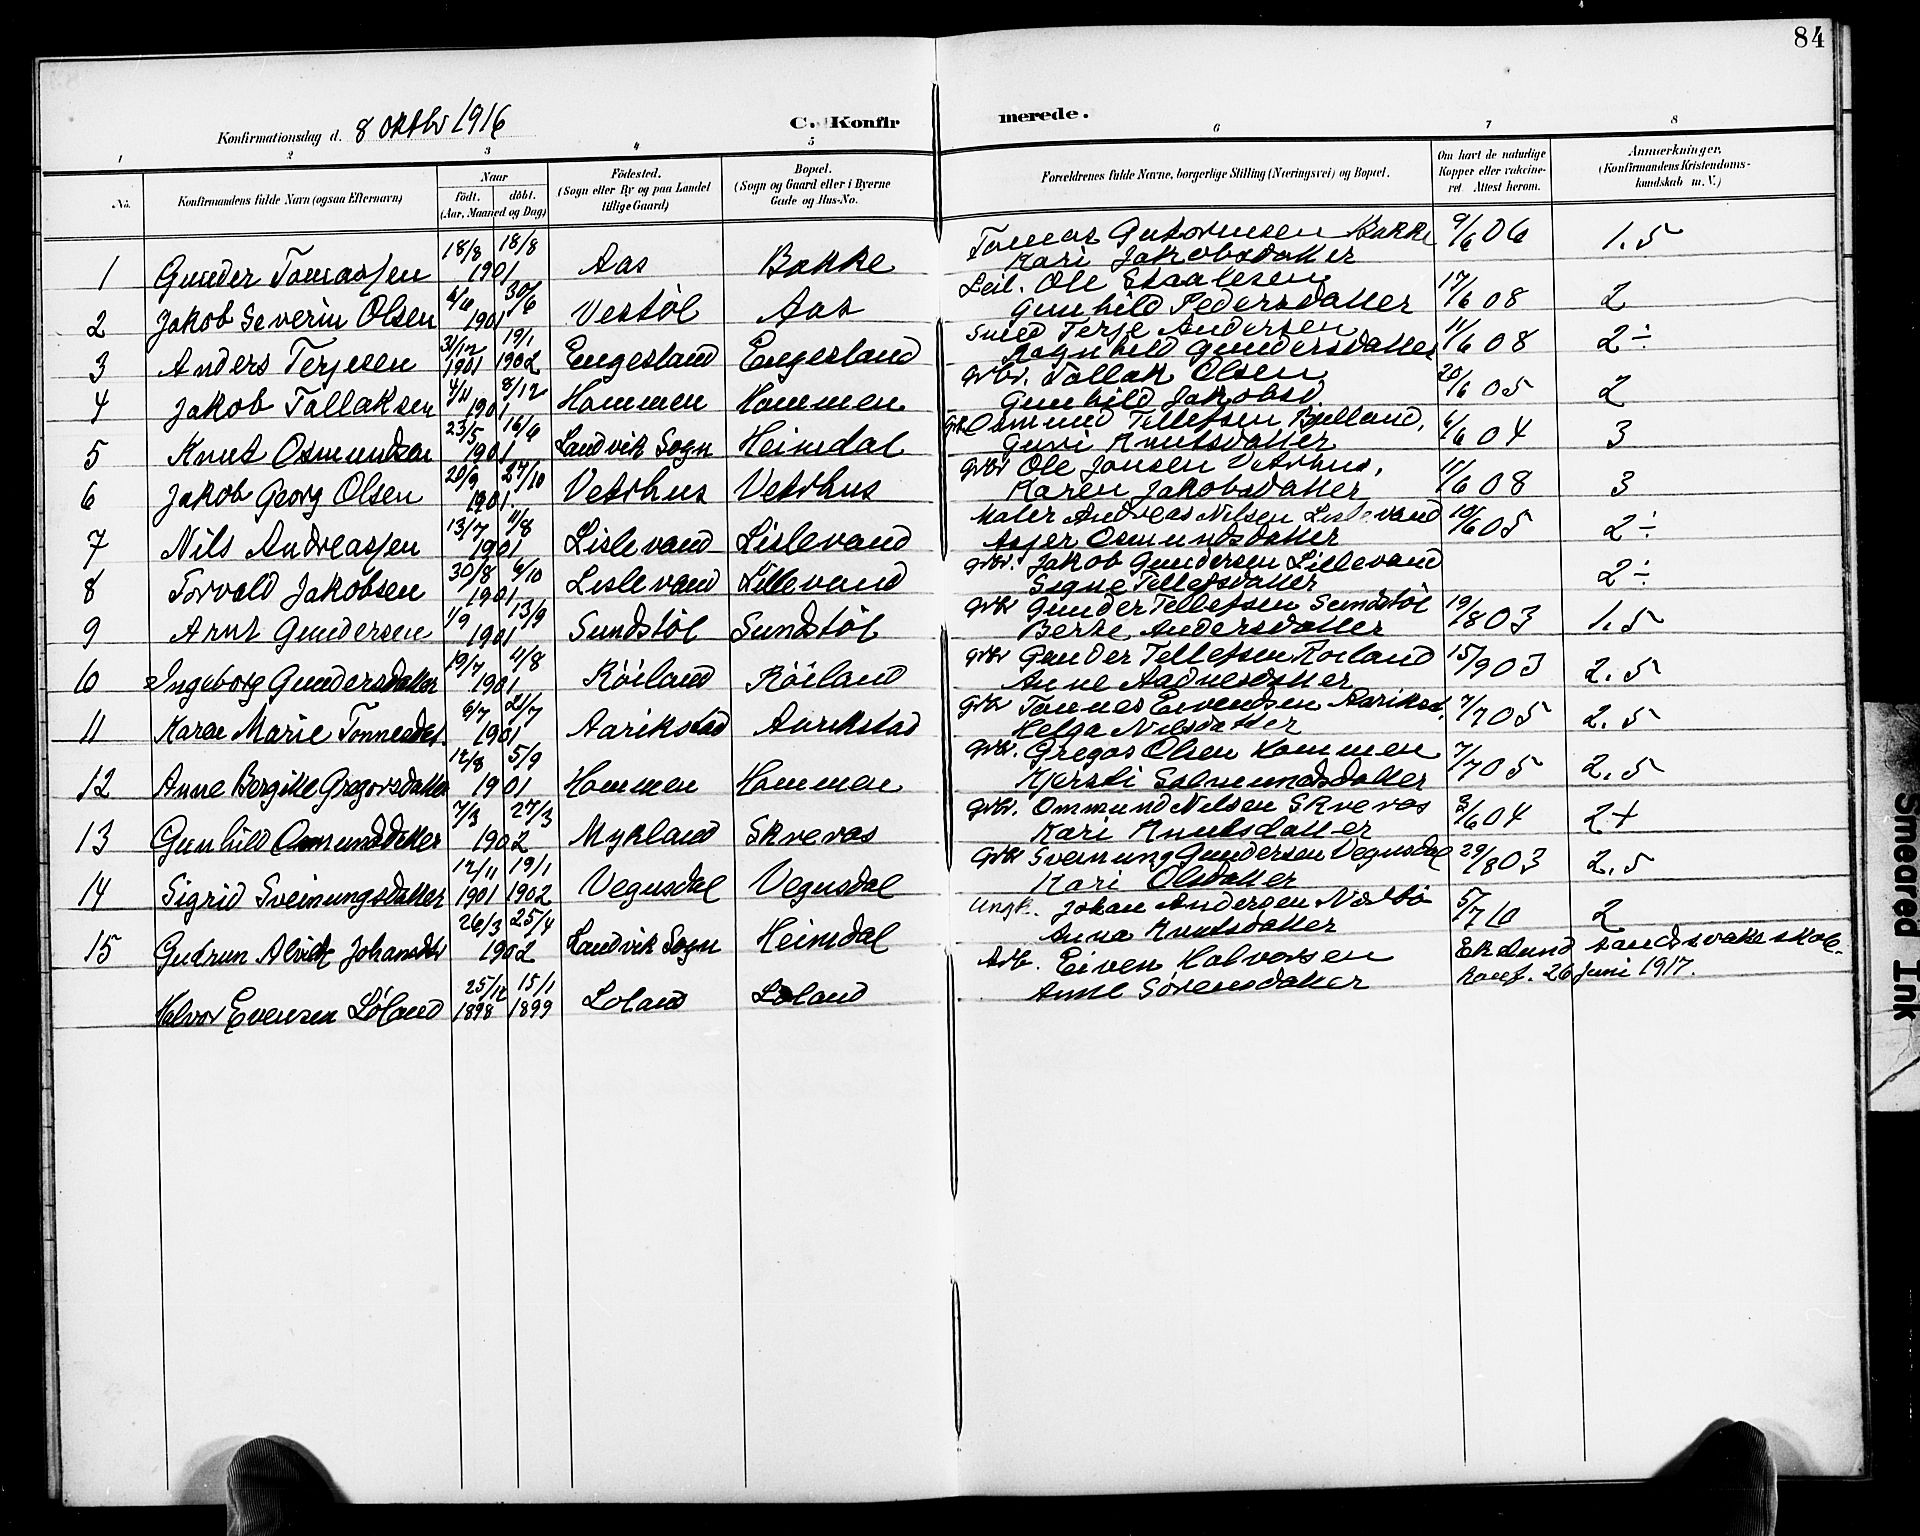 84
Konfirmationsdag d. 8 oktbr 1916 C. Konfir merede.
1 2 3 4 5 6 7 8
No. Konfirmandens fulde Navn (ogsaa Efternavn) Naar født. døbt. (Aar, Maaned og Dag) Fødested. (Sogn eller By og paa Landet tillige Gaard) Bopæl. (Sogn og Gaard eller i Byerne Gade og Hus-No. Forældrenes fulde Navne, borgerlige Stilling (Næringsvei) og Bopæl. Om havt de naturlige Kopper eller vaccineret Attest herom. Anmærkninger. (Konfirmandens Kristendomskundskab m. V.)
18/8 18/8 Tomas Gutormsen Bakke 9/6 06 1.5
1 Gunder Tomassen 1901 Aas Bakke Kari Jakobsdatter
4/4 30/6 Leil. Ole Staalesen 17/6 08 2
2 Jakob Severin Olsen 1901 Vestøl Aas Gunhild Pedersdatter
31/12 19/1 Smed Terje Andersen 11/6 08 2 ÷
3 Anders Terjesen 1901 1902 Engesland Engesland Ragnhild Gundersdatter
4/11 8/12 Grbr. Tallak Olsen 20/6 05 2
4 Jakob Tallaksen 1901 Hommen Hommen Gunhild Jakobsd
23/5 16/6 Grbr Osmund Tellefsen Bjelland, 6/6 04 3
5 Knut Osmundsen 1901 Landvik Sogn Heimdal Guri Knutsdatter
20/9 27/10 Grbr Ole Jensen Vetrhus, 11/6 08 3
6 Jakob Georg Olsen 1901. Vetrhus Vetrhus Karen Jakobsdatter
13/7 11/8 Maler Andreas Nilsen Lislevand 10/6 05 2 ÷
7 Nils Andreassen 1901 Lislevand Lislevand Asjer Osmundsdatter
30/8 6/10 Grbr. Jakob Gundersen Lillevand 2 ÷
8 Torvald Jakobsen 1901 Lislevand Lillevand Signe Tellefsdatter
1/9 13/9 Grbr Gunder Tellefsen Sundstøl 19/8 03 1.5
9 Arnt Gundersen 1901 Sundstøl Sundstøl Berte Andersdatter
19/7 11/8 Grbr Gunder Tellefsen Røiland 15/9 03 2.5
10 Ingeborg Gundersdatter 1901 Røiland Røiland Anne Aadnesdatter
6/7 21/7 Grbr Tønnes Eivendsen Aarikst. 7/7 05 2.5
11 Karen Marie Tønnesdat. 1901 Aarikstad Aarikstad Helga Nilsdatter
12/8 5/9 Grbr. Gregas Olsen Hommen 7/7 05 2.5
12 Anne Bergitte Gregorsdatter 1901 Hommen Hommen Kjersti Salmundsdatter
7/3 27/3 Grbr. Ommund Nilsen Skreros 3/6 04 2 +
13 Gunhild Omunddatter 1902 Mykland Skreros Kari Knutsdatter
12/11 19/1 Grbr Sveinung Gundersen Vegusdal 29/8 03 2.5
14 Sigrid Sveinungsdatter 1901 1902 Vegusdal Vegusdal Kari Olsdatter
26/3 25/4 Ungk. Johan Andersen Næsbø 5/7 10 2
15 Gudrun Alvide Johansdtr 1902 Landvik Sogn Heimdal Anna Knutsdatter
25/12 15/1 Arb. Eiven Halvorsen Eklund
Halvor Evensen Løland 1898 1899 Loland Loland Anne Sørensdatter Konf. 26 juni 1917.
Smeared Ink